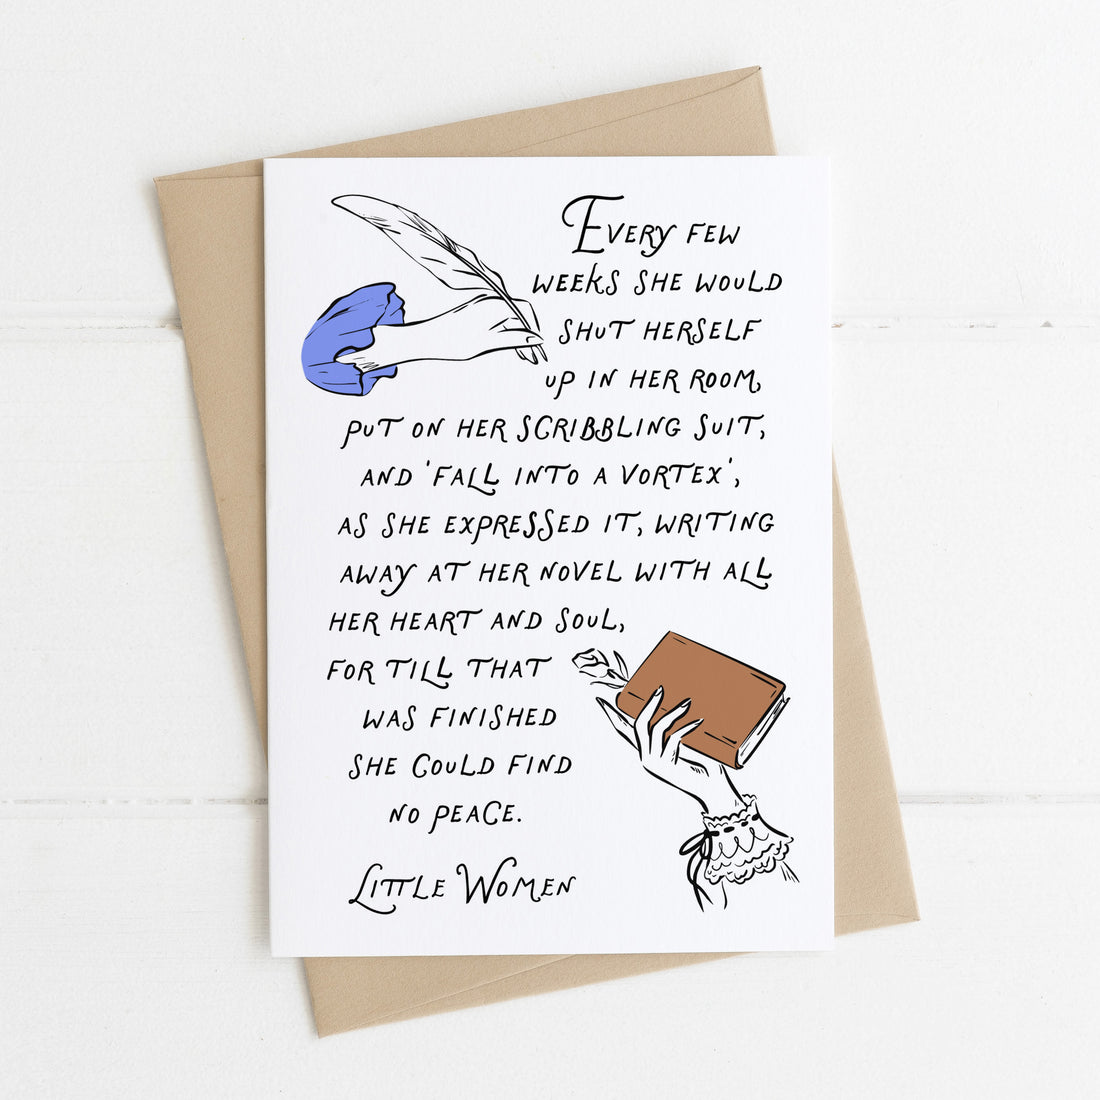 Every few
weeks she would
shut herself
up in her room,
put on her scribbling suit,
and 'fall into a vortex',
as she expressed it, writing
away at her novel with all
her heart and soul,
for till that
was finished
she could find
no peace.
Little Women